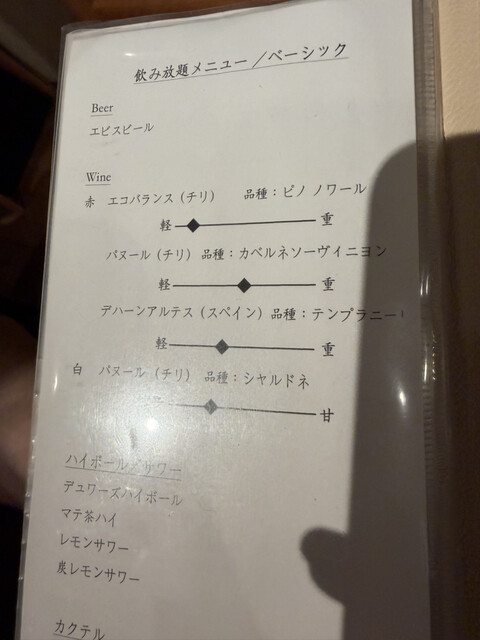 飲み放題メニュー／ベーシック
Beer
ヱビスビール
Wine
赤 エコバランス（チリ） 品種：ピノ ノワール
軽 重
パヌール（チリ）品種：カベルネソーヴィニヨン
軽 重
デハーンアルテス（スペイン）品種：テンプラニー
軽 重
白 パヌール（チリ） 品種：シャルドネ
甘
ハイボール／サワー
デュワーズハイボール
マテ茶ハイ
レモンサワー
炭レモンサワー
カクテル